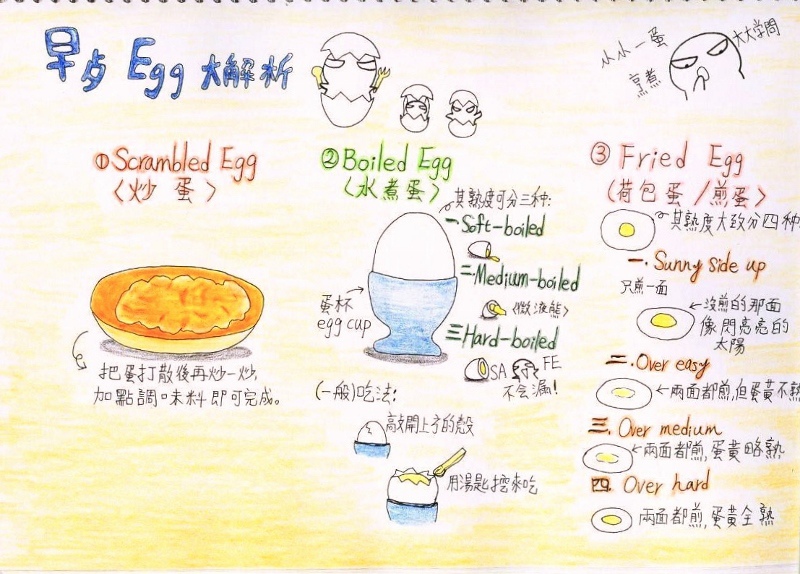 早点 Egg 大解析
小小一蛋
大大学問
烹煮
①Scrambled Egg
〈炒蛋〉
把蛋打散後再炒一炒,
加點調味料即可完成。
②Boiled Egg
〈水煮蛋〉
其熟度可分三種:
一Soft-boiled
二Medium-boiled
〈微液態〉
三Hard-boiled
SA FE
不會漏!
蛋杯
egg cup
(一般)吃法:
敲開上方的殼
用湯匙挖來吃
③ Fried Egg
(荷包蛋/煎蛋〉
其熟度大致分四種
一. Sunny side up
只煎一面
←沒煎的那面
像閃亮亮的
太陽
二. Over easy
←兩面都煎,但蛋黃不熟
三. Over medium
←兩面都煎,蛋黃略熟
四. Over hard
兩面都煎,蛋黃全熟